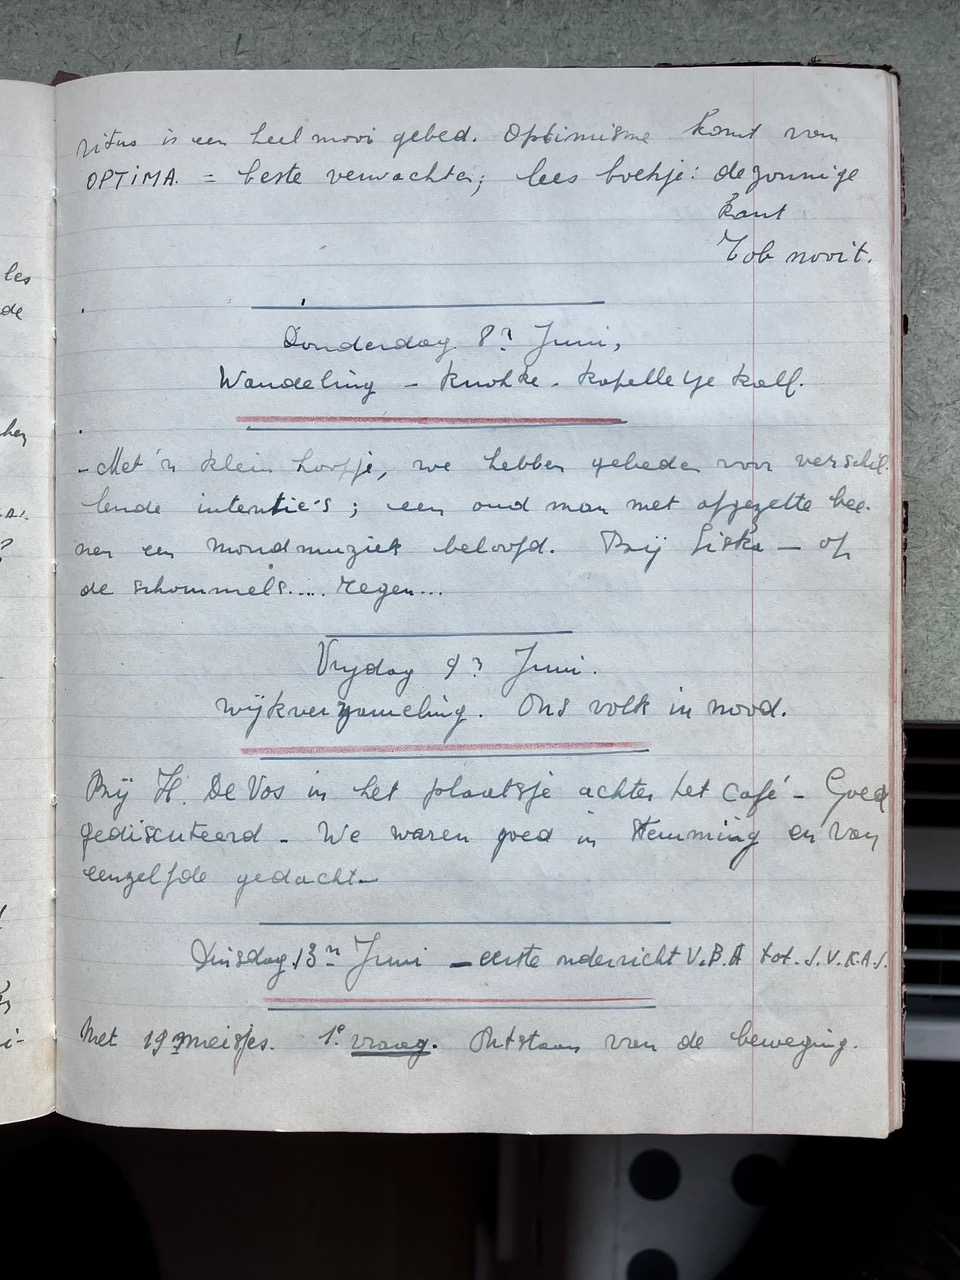 ritus is een heel mooi gebed. Optimisme komt van
OPTIMA. = beste verwachten; lees boekje: de zonnige
kant
Tob nooit.
Donderdag 8? Juni,
Wandeling - Knokke - Kapelletje Kalf.
- Met 'n klein hoopje, we hebben gebeden voor verschil-
lende intentie's ; een oud man met afgezette bee-
nen een mondmuziek beloofd. Bij Siska - op
de schommels..... regen...
Vrijdag 9? Juni.
Wijkverzameling. Ons volk in nood.
Bij H. De Vos in het plaatsje achter het café - Goed
gediscuteerd - We waren goed in stemming en van
eenzelfde gedacht
Dinsdag 13n Juni - eerste onderricht V.B.A tot. J.V.K.A.J.
Met 19 meisjes. 1° vraag. Ontstaan van de beweging.
les
de